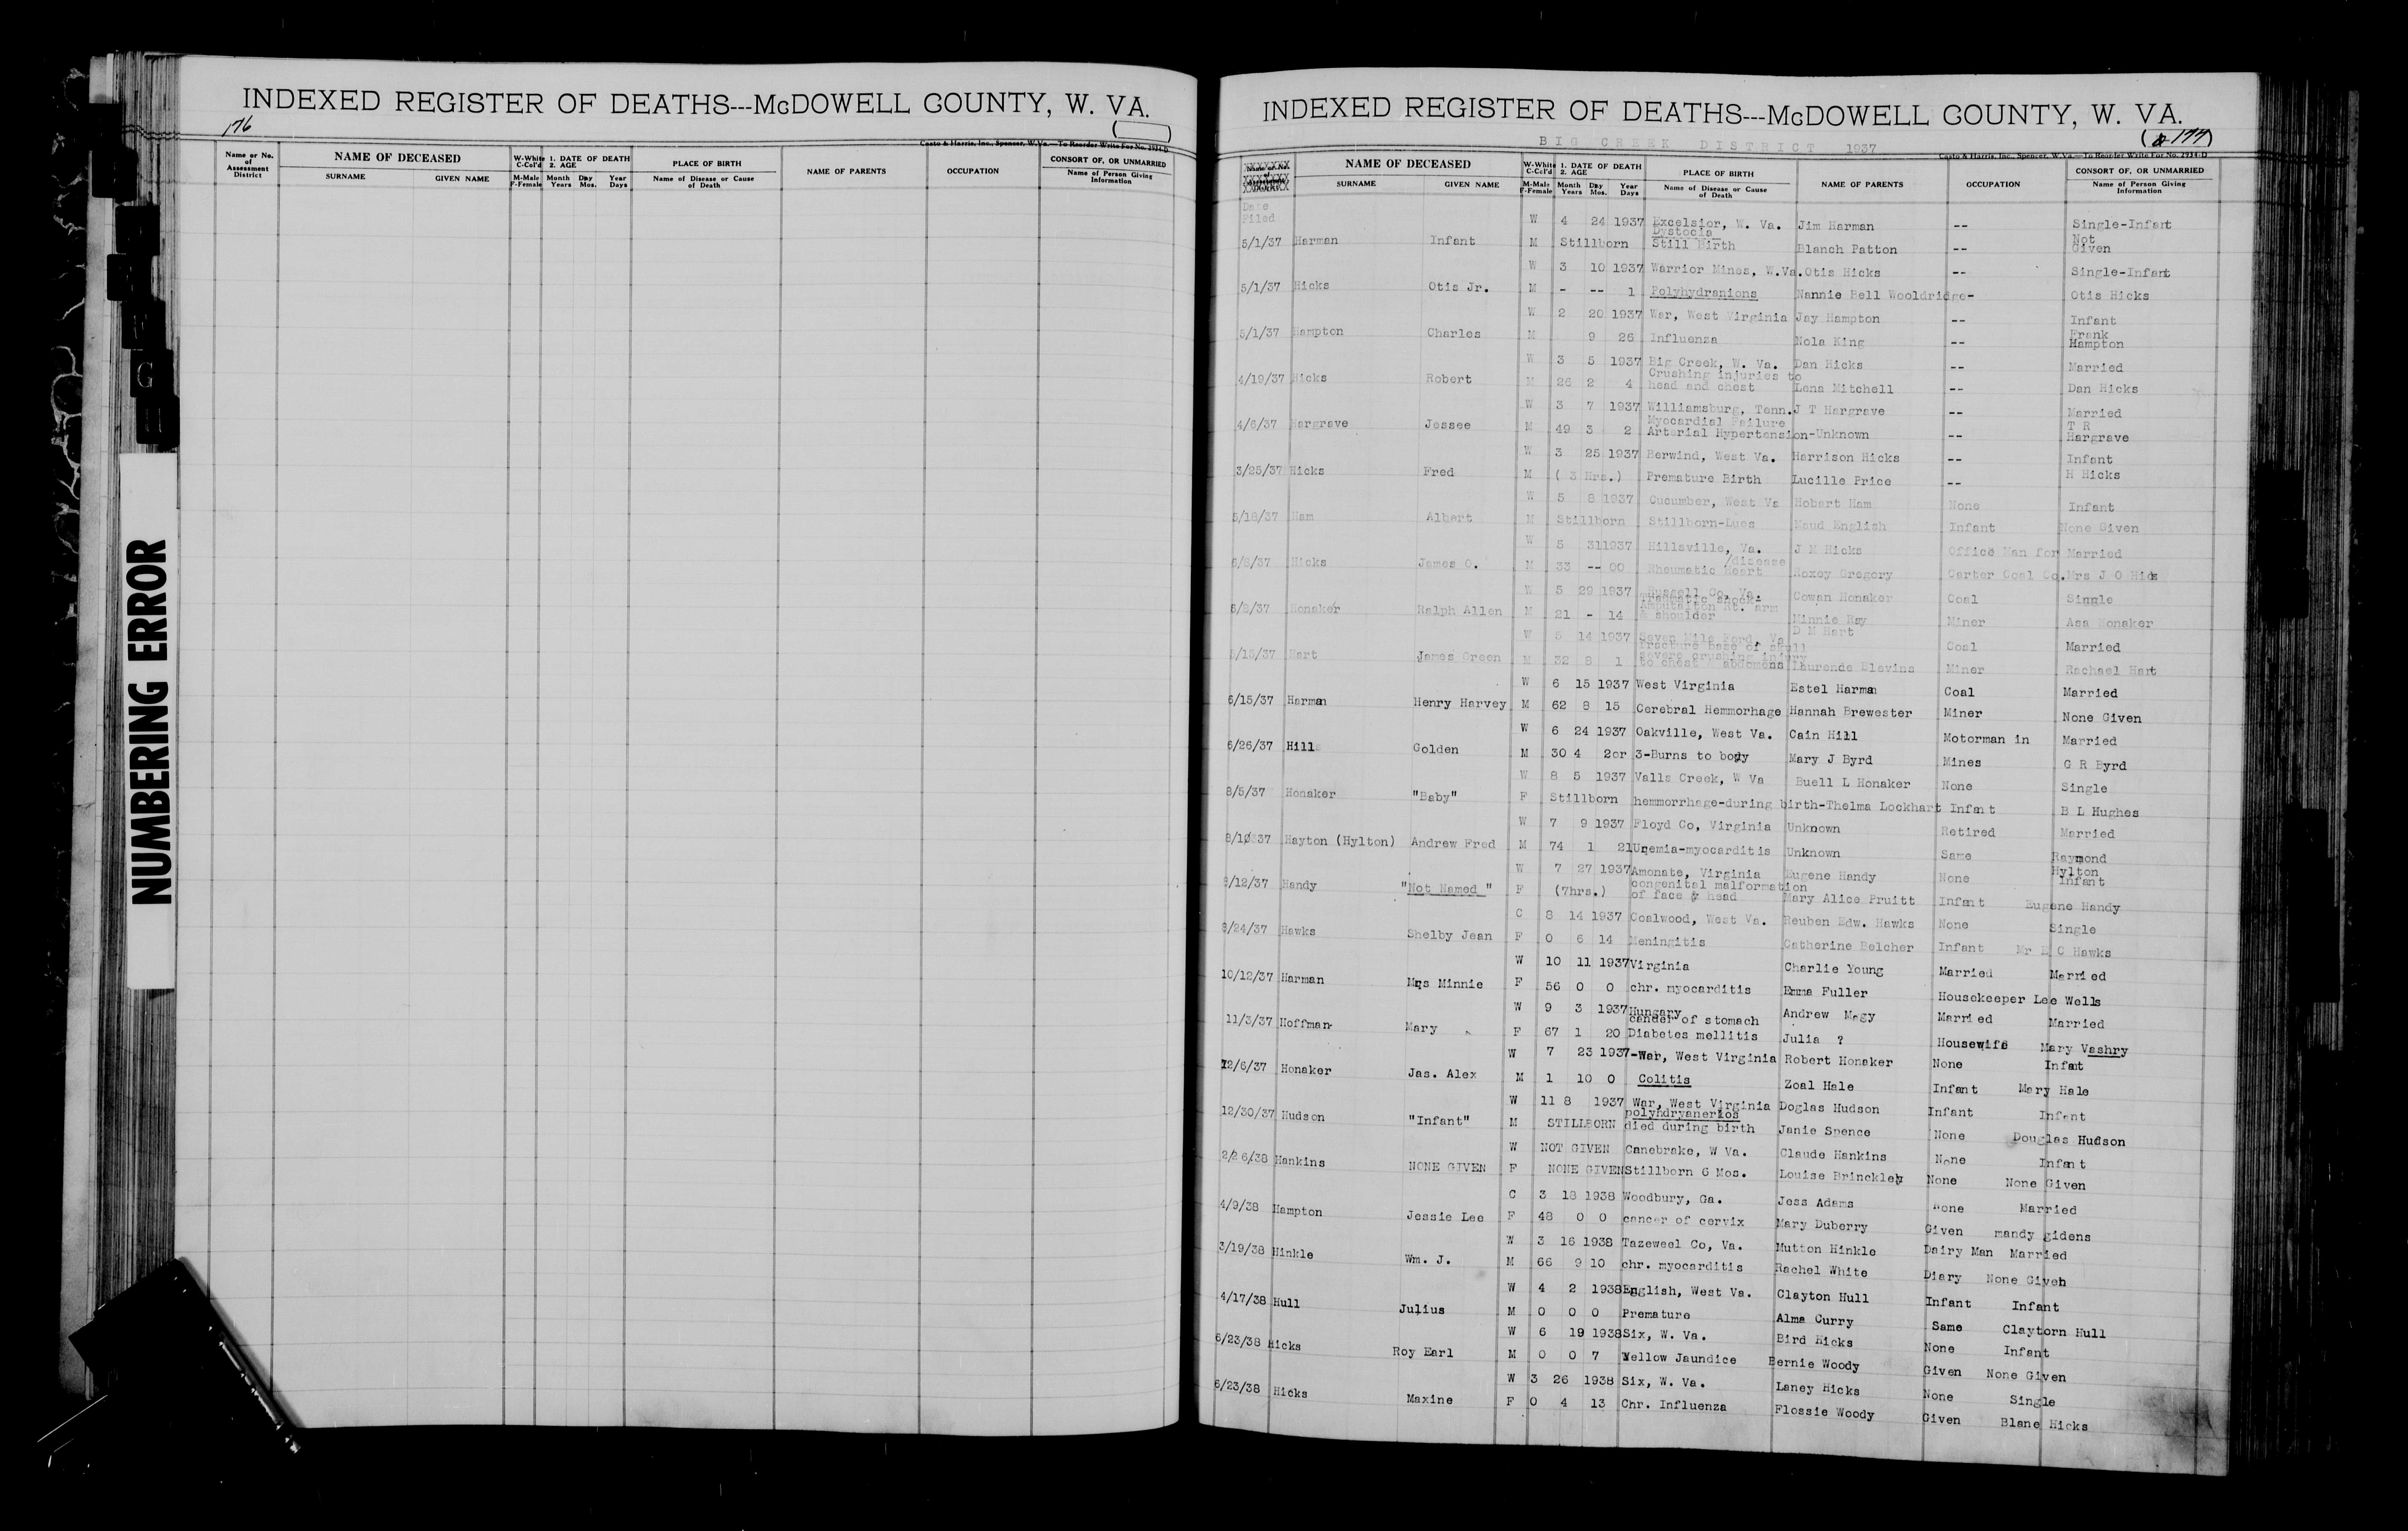 NUMBERING ERROR
INDEXED REGISTER OF DEATHS---McDOWELL COUNTY, W. VA.
176
Casto & Harris, Inc., Spencer, W. Va.—To Reorder Write For No. 2934-D
Name or No. of Assessment District NAME OF DECEASED W-White C-Col'd 1. DATE OF DEATH 2. AGE PLACE OF BIRTH NAME OF PARENTS OCCUPATION CONSORT OF, OR UNMARRIED
SURNAME GIVEN NAME M-Male F-Female Month Years Day Mos. Year Days Name of Disease or Cause of Death Name of Person Giving Information
INDEXED REGISTER OF DEATHS---McDOWELL COUNTY, W. VA.
BIG CREEK DISTRICT 1937
Casto & Harris, Inc., Spencer, W. Va.—To Reorder Write For No. 2934-D
NAME OF DECEASED W-White C-Col'd 1. DATE OF DEATH 2. AGE PLACE OF BIRTH NAME OF PARENTS OCCUPATION CONSORT OF, OR UNMARRIED
SURNAME GIVEN NAME M-Male F-Female Month Years Day Mos. Year Days Name of Disease or Cause of Death Name of Person Giving Information
Date Filed
W 4 24 1937 Excelsior, W. Va. Jim Harman -- Single-Infant
5/1/37 Harman Infant M Stillborn Dystocia Still Birth Blanch Patton -- Not Given
W 3 10 1937 Warrior Mines, W.Va. Otis Hicks -- Single-Infant
5/1/37 Hicks Otis Jr. M - -- 1 Polyhydranions Nannie Bell Wooldridge- Otis Hicks
W 2 20 1937 War, West Virginia Jay Hampton -- Infant
5/1/37 Hampton Charles M 9 26 Influenza Nola King -- Frank Hampton
W 3 5 1937 Big Creek, W. Va. Dan Hicks -- Married
4/19/37 Hicks Robert M 26 2 4 Crushing injuries to head and chest Lena Mitchell -- Dan Hicks
W 3 7 1937 Williamsburg, Tenn. J T Hargrave -- Married
4/6/37 Hargrave Jessee M 49 3 2 Myocardial Failure Arterial Hypertension-Unknown -- T R Hargrave
W 3 25 1937 Berwind, West Va. Harrison Hicks -- Infant
3/25/37 Hicks Fred M ( 3 Hrs.) Premature Birth Lucille Price -- H Hicks
W 5 8 1937 Cucumber, West Va Hobart Ham None Infant
5/18/37 Ham Albert M Stillborn Stillborn-Lues Maud English Infant None Given
W 5 311937 Hillsville, Va. J M Hicks Office Man for Married
6/8/37 Hicks James O. M 33 -- 00 Rheumatic Heart /disease Roxey Gregory Carter Coal Co. Mrs J O Hicks
W 5 29 1937 Russell Co, Va. Cowan Honaker Coal Single
6/2/37 Honaker Ralph Allen M 21 - 14 Traumatic shock- Amputaiton Rt. arm & shoulder Minnie Ray Miner Asa Honaker
W 5 14 1937 Seven Mile Ford, Va D M Hart Coal Married
5/15/37 Hart James Green M 32 8 1 fracture base of skull severe crushing injury to chest abdomens Laurende Blevins Miner Rachael Hart
W 6 15 1937 West Virginia Estel Harman Coal Married
6/15/37 Harman Henry Harvey M 62 8 15 Cerebral Hemmorhage Hannah Brewester Miner None Given
W 6 24 1937 Oakville, West Va. Cain Hill Motorman in Married
6/26/37 Hill Golden M 30 4 2or 3-Burns to body Mary J Byrd Mines G R Byrd
W 8 5 1937 Valls Creek, W Va Buell L Honaker None Single
8/5/37 Honaker "Baby" F Stillborn hemmorrhage-during birth-Thelma Lockhart Infant B L Hughes
W 7 9 1937 Floyd Co, Virginia Unknown Retired Married
8/10/37 Hayton (Hylton) Andrew Fred M 74 1 21 Uremia-myocarditis Unknown Same Raymond Hylton
W 7 27 1937 Amonate, Virginia Eugene Handy None Infant
8/12/37 Handy "Not Named" F (7hrs.) congenital malformation of face & head Mary Alice Pruitt Infant Eugene Handy
C 8 14 1937 Coalwood, West Va. Reuben Edw. Hawks None Single
8/24/37 Hawks Shelby Jean F 0 6 14 Meningitis Catherine Belcher Infant Mr E C Hawks
W 10 11 1937 Virginia Charlie Young Married Married
10/12/37 Harman Mrs Minnie F 56 0 0 chr. myocarditis Emma Fuller Housekeeper Lee Wells
W 9 3 1937 Hungary Andrew Magy Married Married
11/3/37 Hoffman Mary F 67 1 20 cancer of stomach Diabetes mellitis Julia ? Housewife Mary Vashry
W 7 23 1937-War, West Virginia Robert Honaker None Infant
12/6/37 Honaker Jas. Alex M 1 10 0 Colitis Zoal Hale Infant Mary Hale
W 11 8 1937 War, West Virginia Doglas Hudson Infant Infant
12/30/37 Hudson "Infant" M STILLBORN polyhdryanerios died during birth Janie Spence None Douglas Hudson
W NOT GIVEN Canebrake, W Va. Claude Hankins None Infant
2/26/38 Hankins NONE GIVEN F NONE GIVEN Stillborn 6 Mos. Louise Brinckley None None Given
C 3 18 1938 Woodbury, Ga. Jess Adams None Married
4/9/38 Hampton Jessie Lee F 48 0 0 cancer of cervix Mary Duberry Given mandy gidens
W 3 16 1938 Tazeweel Co, Va. Mutton Hinkle Dairy Man Married
3/19/38 Hinkle Wm. J. M 66 9 10 chr. myocarditis Rachel White Diary None Given
W 4 2 1938 English, West Va. Clayton Hull Infant Infant
4/17/38 Hull Julius M 0 0 0 Premature Alma Curry Same Claytorn Hull
W 6 19 1938 Six, W. Va. Bird Hicks None Infant
6/23/38 Hicks Roy Earl M 0 0 7 Yellow Jaundice Bernie Woody Given None Given
W 3 26 1938 Six, W. Va. Laney Hicks None Single
6/23/38 Hicks Maxine F 0 4 13 Chr. Influenza Flossie Woody Given Blane Hicks